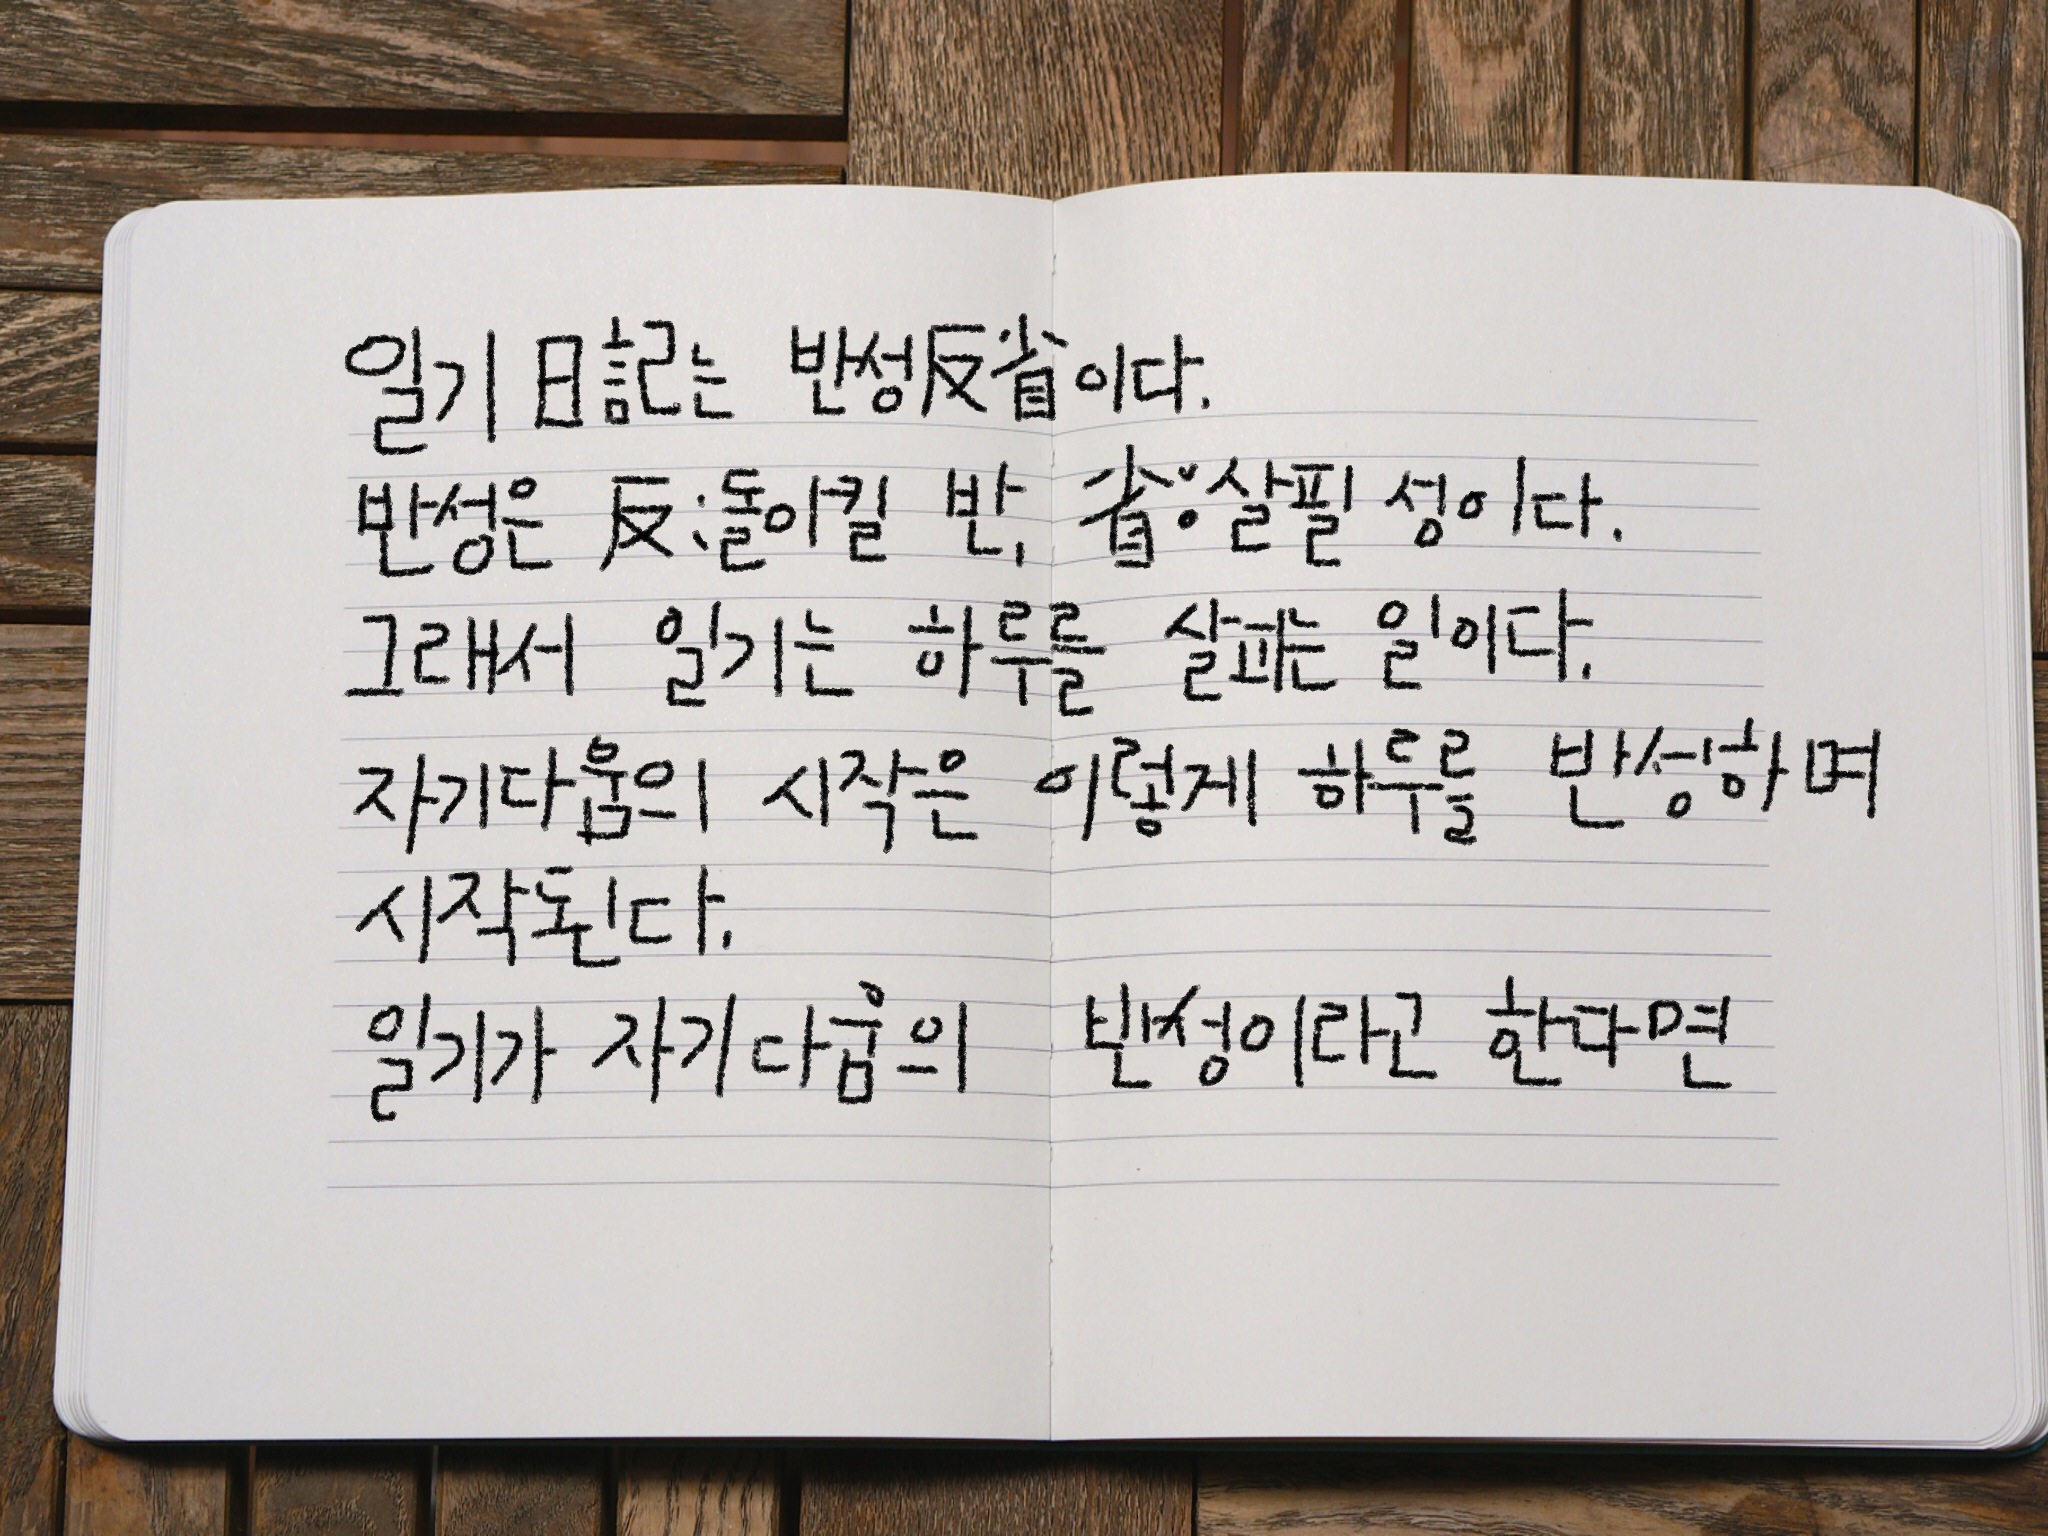 일기 日記는 반성反省이다.
반성은 反:돌이킬 반, 省:살필 성이다.
그래서 일기는 하루를 살피는 일이다.
자기다움의 시작은 이렇게 하루를 반성하며
시작된다.
일기가 자기다움의 반성이라고 한다면